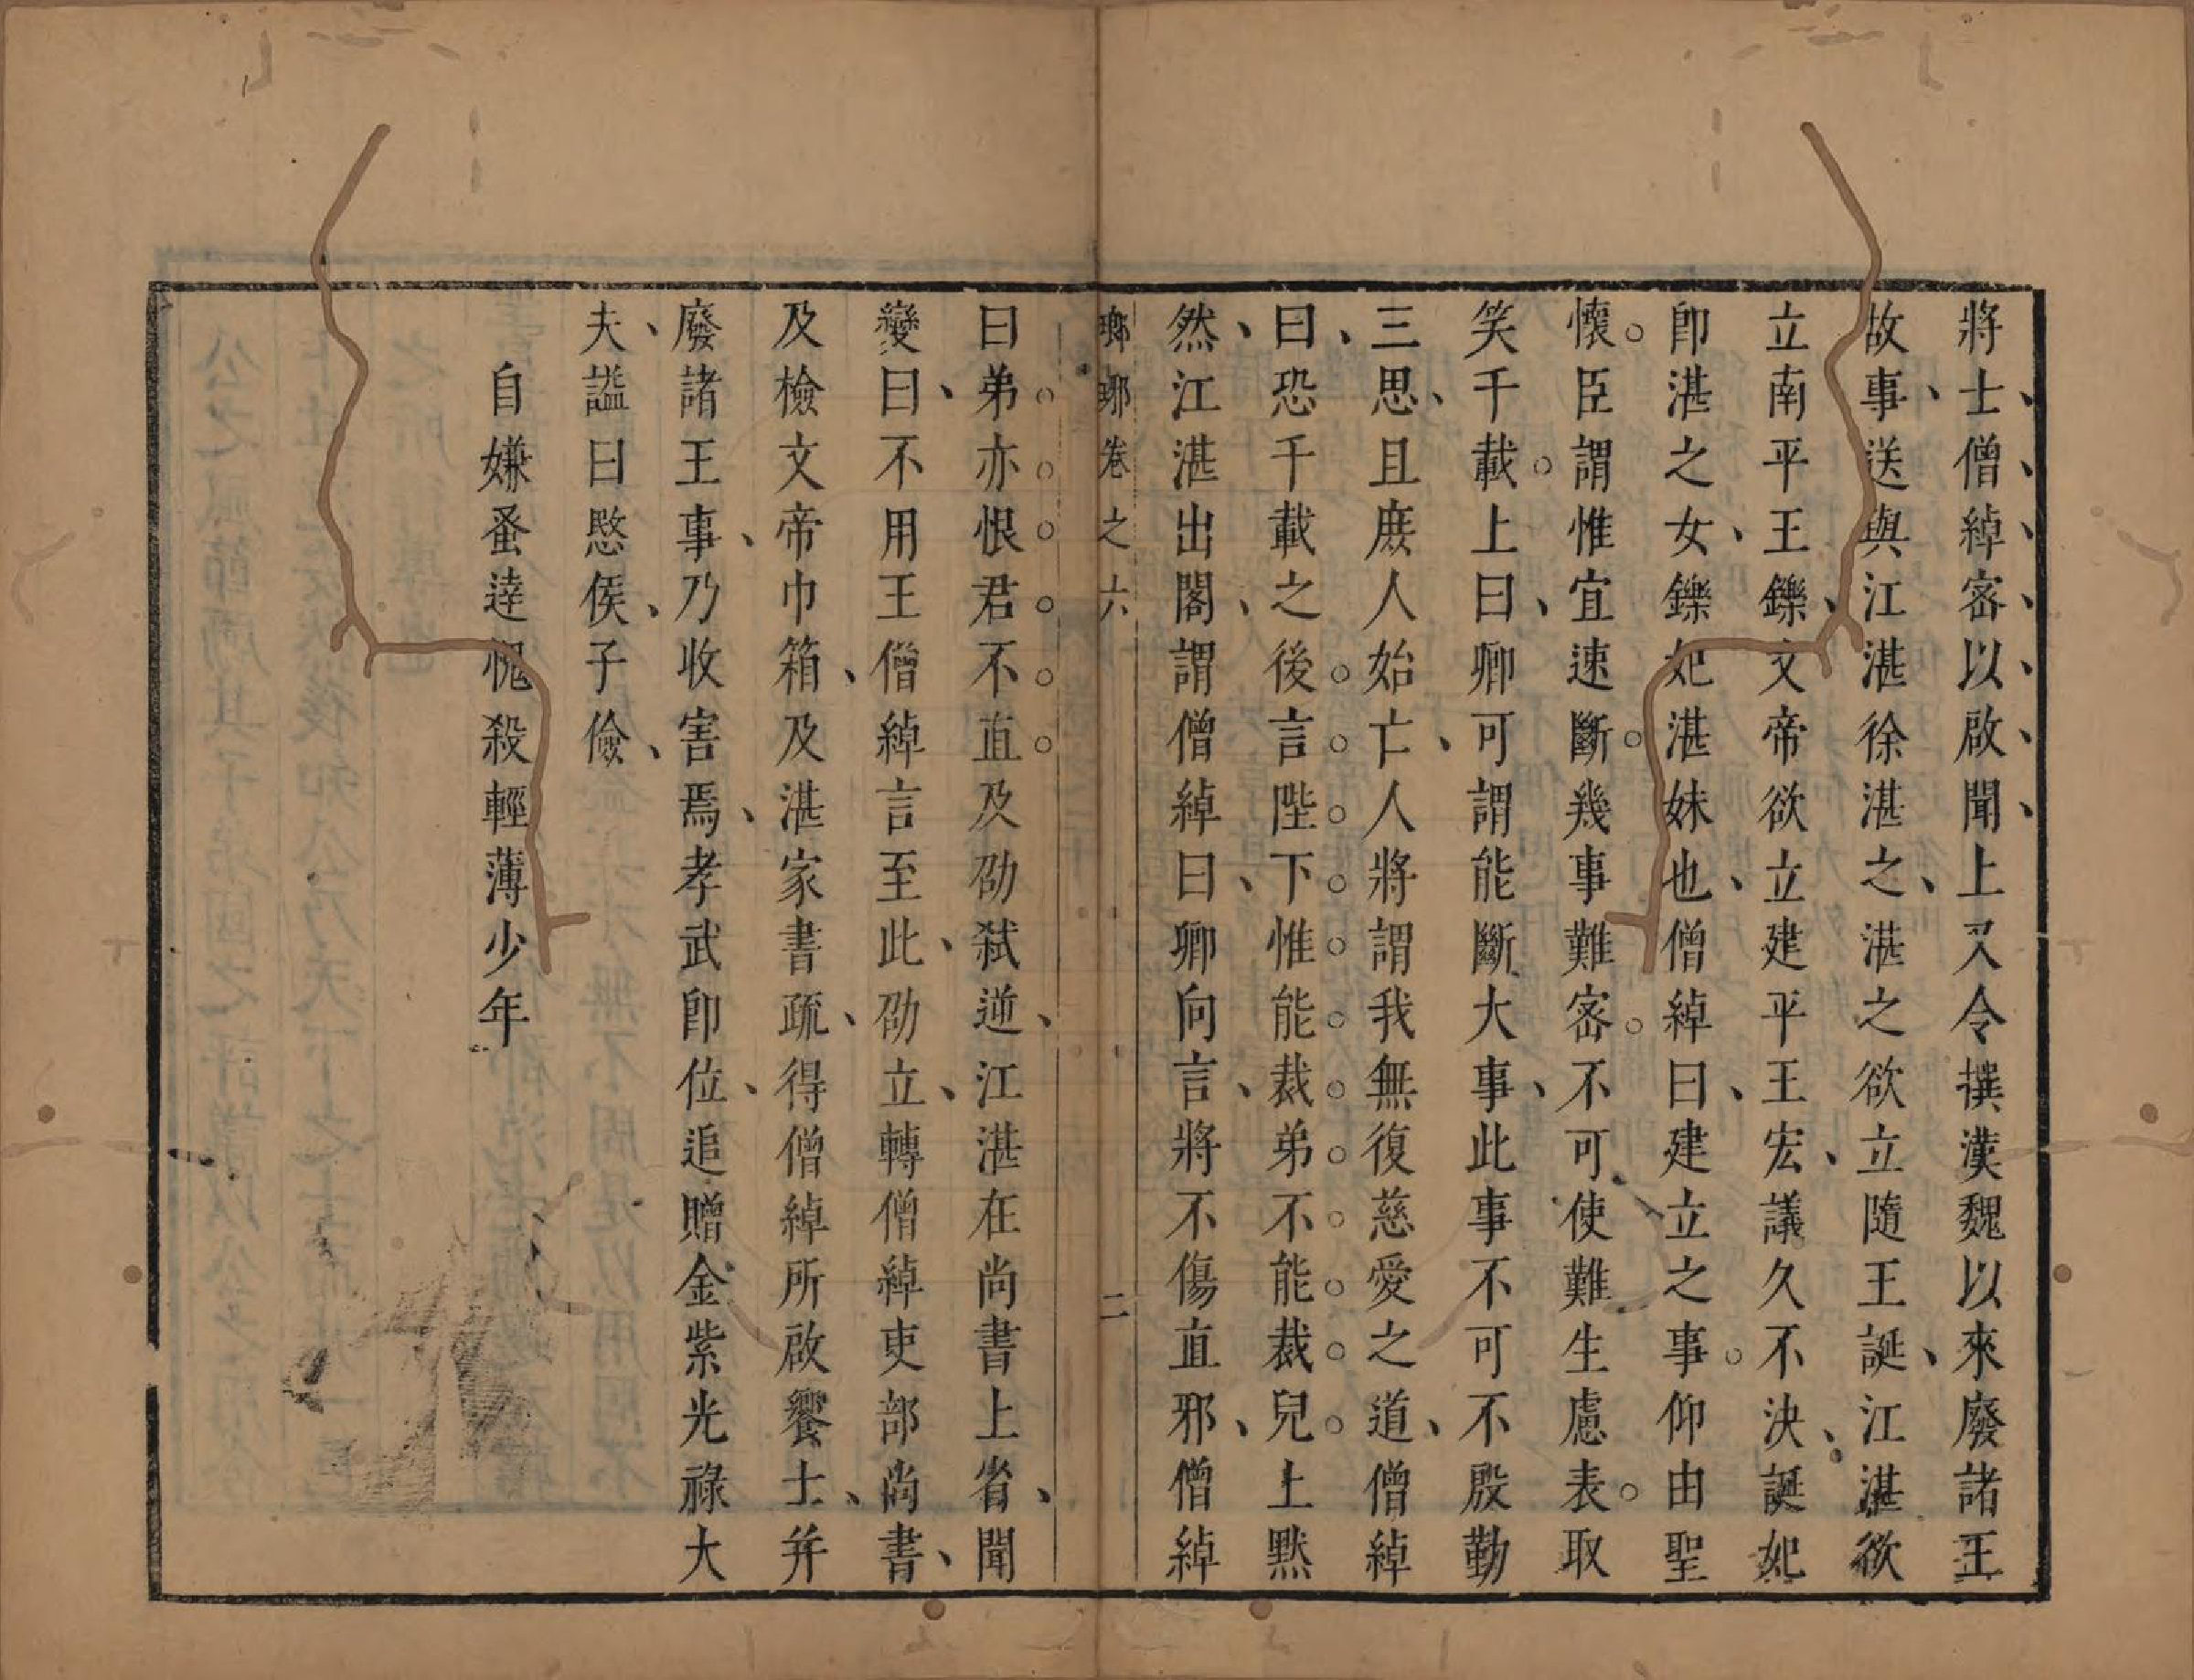 將士、僧、綽、密、以、啟、聞、上又令撰漢魏以來廢諸王
故事、送與江湛徐湛之、湛之欲立隨王誕、江湛欲
立南平王鑠、文帝欲立建平王宏、議久不決、誕妃
卽湛之女、鑠妃湛妹也、僧綽曰、建立之事。仰由聖
懷。臣謂惟宜速斷。幾事難密。不可使難生慮表。取
笑千載。上曰、卿可謂能斷大事、此事不可不殷勤
三思、且庶人始亡、人將謂我無復慈愛之道、僧綽
曰、恐千載之後。言。陛。下。惟。能。裁。弟。不。能。裁。兒。上黙
然、江湛出閣、謂僧綽曰、卿向言、將不傷直邪、僧綽
瑯琊卷之六 二
曰弟。亦。恨。君。不。直。及劭弒逆、江湛在尚書上省、聞
變曰、不用王僧綽言至此、劭立、轉僧綽吏部尚書、
及檢文帝巾箱、及湛家書疏、得僧綽所啟饗士、幷
廢諸王事、乃收害焉、孝武卽位、追贈金紫光祿大
夫、謚曰愍侯、子儉、
自嫌蚤達愧殺輕薄少年